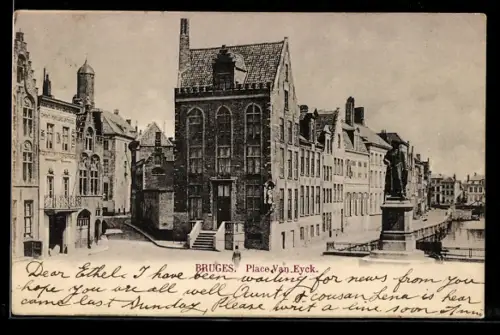 BRUGES. Place Van Eyck.
Dear Ethel I have been waiting for news from you
hope you are all well Aunty & cousan Lena is hear
came last Sunday, Please writ a line soon